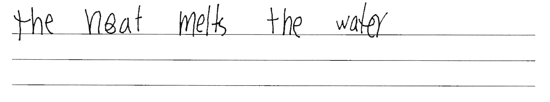 the heat melts the water